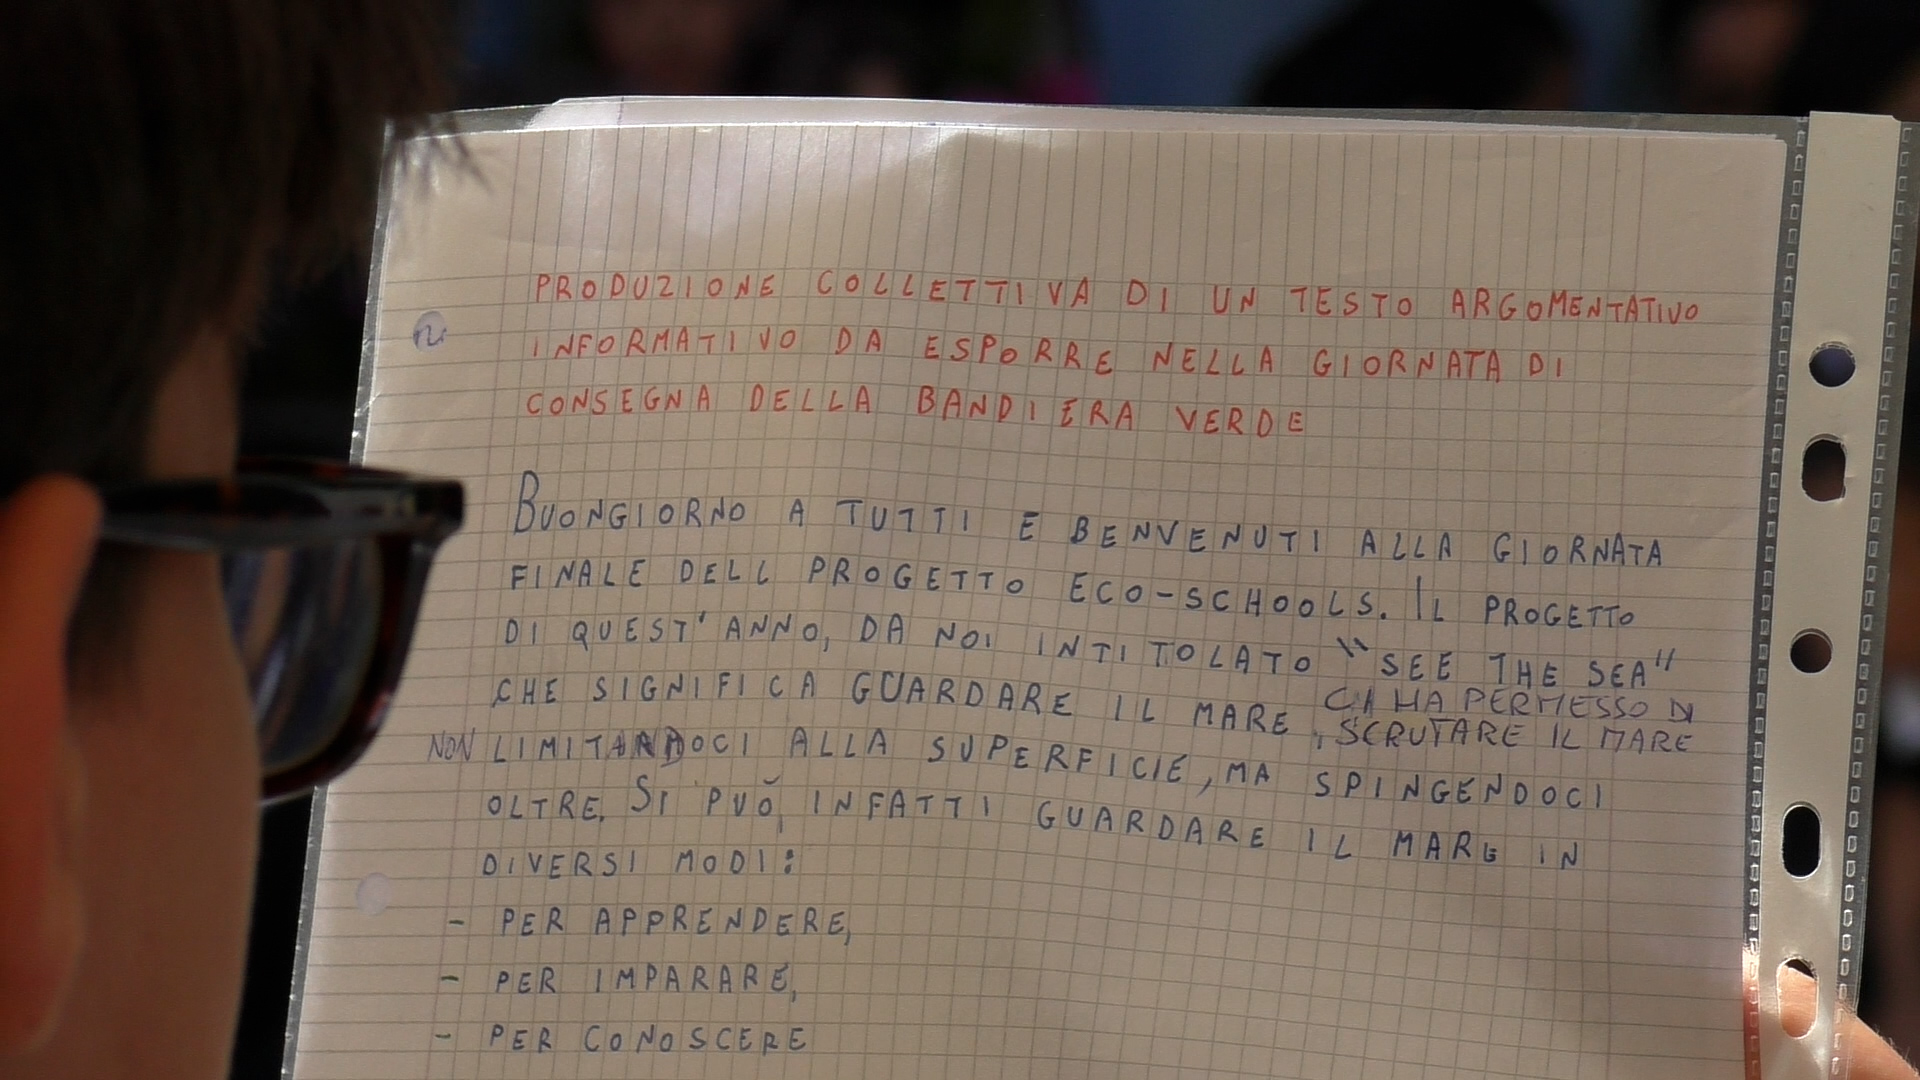 PRODUZIONE COLLETTIVA DI UN TESTO ARGOMENTATIVO
INFORMATIVO DA ESPORRE NELLA GIORNATA DI
CONSEGNA DELLA BANDIERA VERDE
BUONGIORNO A TUTTI E BENVENUTI ALLA GIORNATA
FINALE DELL PROGETTO ECO-SCHOOLS. IL PROGETTO
DI QUEST'ANNO, DA NOI INTITOLATO "SEE THE SEA"
CHE SIGNIFICA GUARDARE IL MARE, CI HA PERMESSO DI
SCRUTARE IL MARE
NON LIMITANDOCI ALLA SUPERFICIE, MA SPINGENDOCI
OLTRE. SI PUÒ, INFATTI GUARDARE IL MARE IN
DIVERSI MODI:
- PER APPRENDERE,
- PER IMPARARE,
- PER CONOSCERE